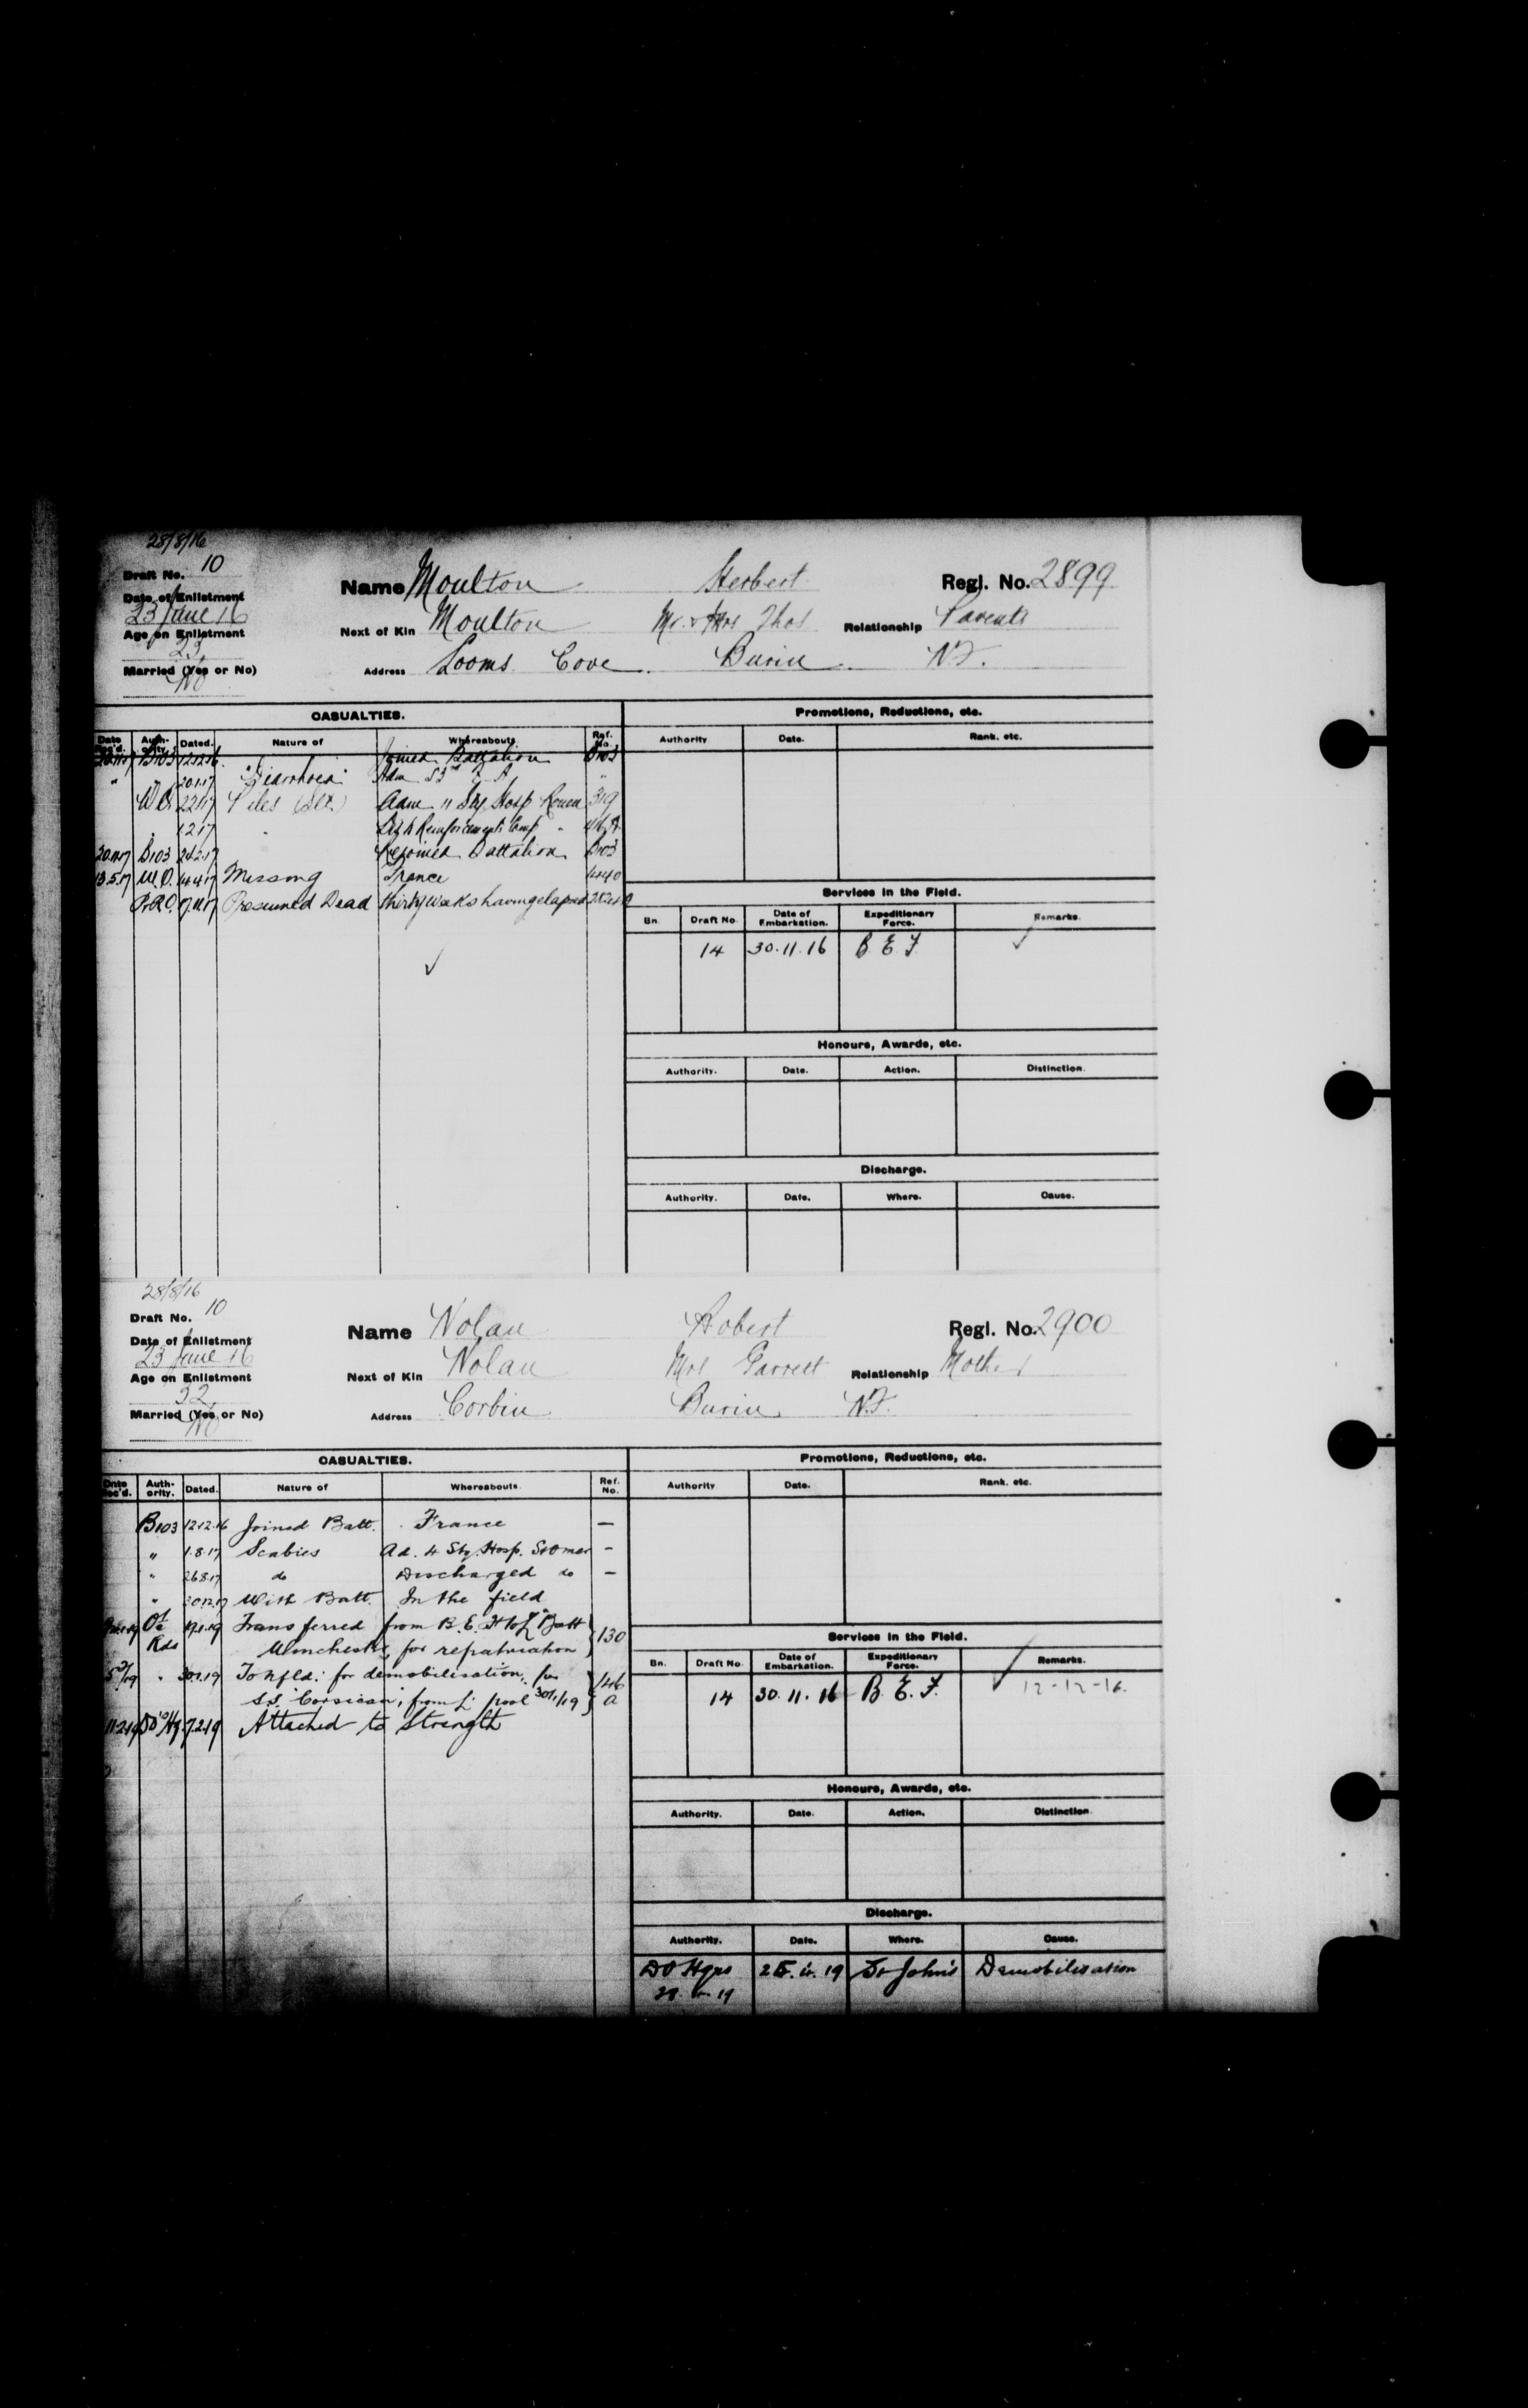 28/8/16
Draft No. 10
Date of Enlistment
23 June 16
Age on Enlistment
23
Married (Yes or No)
No
Name Moulton Herbert Regl. No. 2899
Next of Kin Moulton Mr. & Mrs Thos Relationship Parents
Address Looms Cove Burin N.F.
CASUALTIES.
Date Rec'd. Auth-ority. Dated. Nature of Whereabouts Ref. No.
B103 12.12.16 Joined Battalion B103
" 20.1.17 "Diarrhoea" Adm 53rd F. A. "
W.O. 22.1.17 Piles Adm 11 Sty Hosp Rouen 319
1.2.17 " Reinforcements Camp "
B103 24.2.17 Rejoined Battalion B103
13.5.17 W.O. 14.4.17 Missing France 4440
Presumed Dead thirty weeks having elapsed
Promotions, Reductions, etc.
Authority Date. Rank. etc.
Services in the Field.
Bn. Draft No. Date of Embarkation. Expeditionary Force. Remarks.
14 30.11.16 B. E. F. ✓
Honours, Awards, etc.
Authority. Date. Action. Distinction.
Discharge.
Authority. Date. Where. Cause.
28/8/16
Draft No. 10
Date of Enlistment
23 June 16
Age on Enlistment
Married (Yes or No)
No
Name Nolan Robert Regl. No. 2900
Next of Kin Nolan Mrs Garrett Relationship Mother
Address Corbin Burin N.F.
CASUALTIES.
Date Rec'd. Auth-ority. Dated. Nature of Whereabouts Ref. No.
B103 12.12.16 Joined Batt. France —
" 1.8.17 Scabies Ad. 4 Sty. Hosp. St Omer –
" 26.8.17 do Discharged do –
" 30.12.17 With Batt. In the field
Transferred from B.E.F. to Batt 130
Rds Winchester, for repatriation
" 30.1.19 To Nfld: for demobilisation, per 146
S.S. "Corsican", from L'pool 30/1/19 A
11.2.19 7.2.19 Attached to strength
Promotions, Reductions, etc.
Authority Date. Rank. etc.
Services in the Field.
Bn. Draft No. Date of Embarkation. Expeditionary Force. Remarks.
14 30.11.16 B. E. F. ✓ 12-12-16.
Honours, Awards, etc.
Authority. Date. Action. Distinction.
Discharge.
Authority. Date. Where. Cause.
DO Hqrs 19 St John's Demobilisation